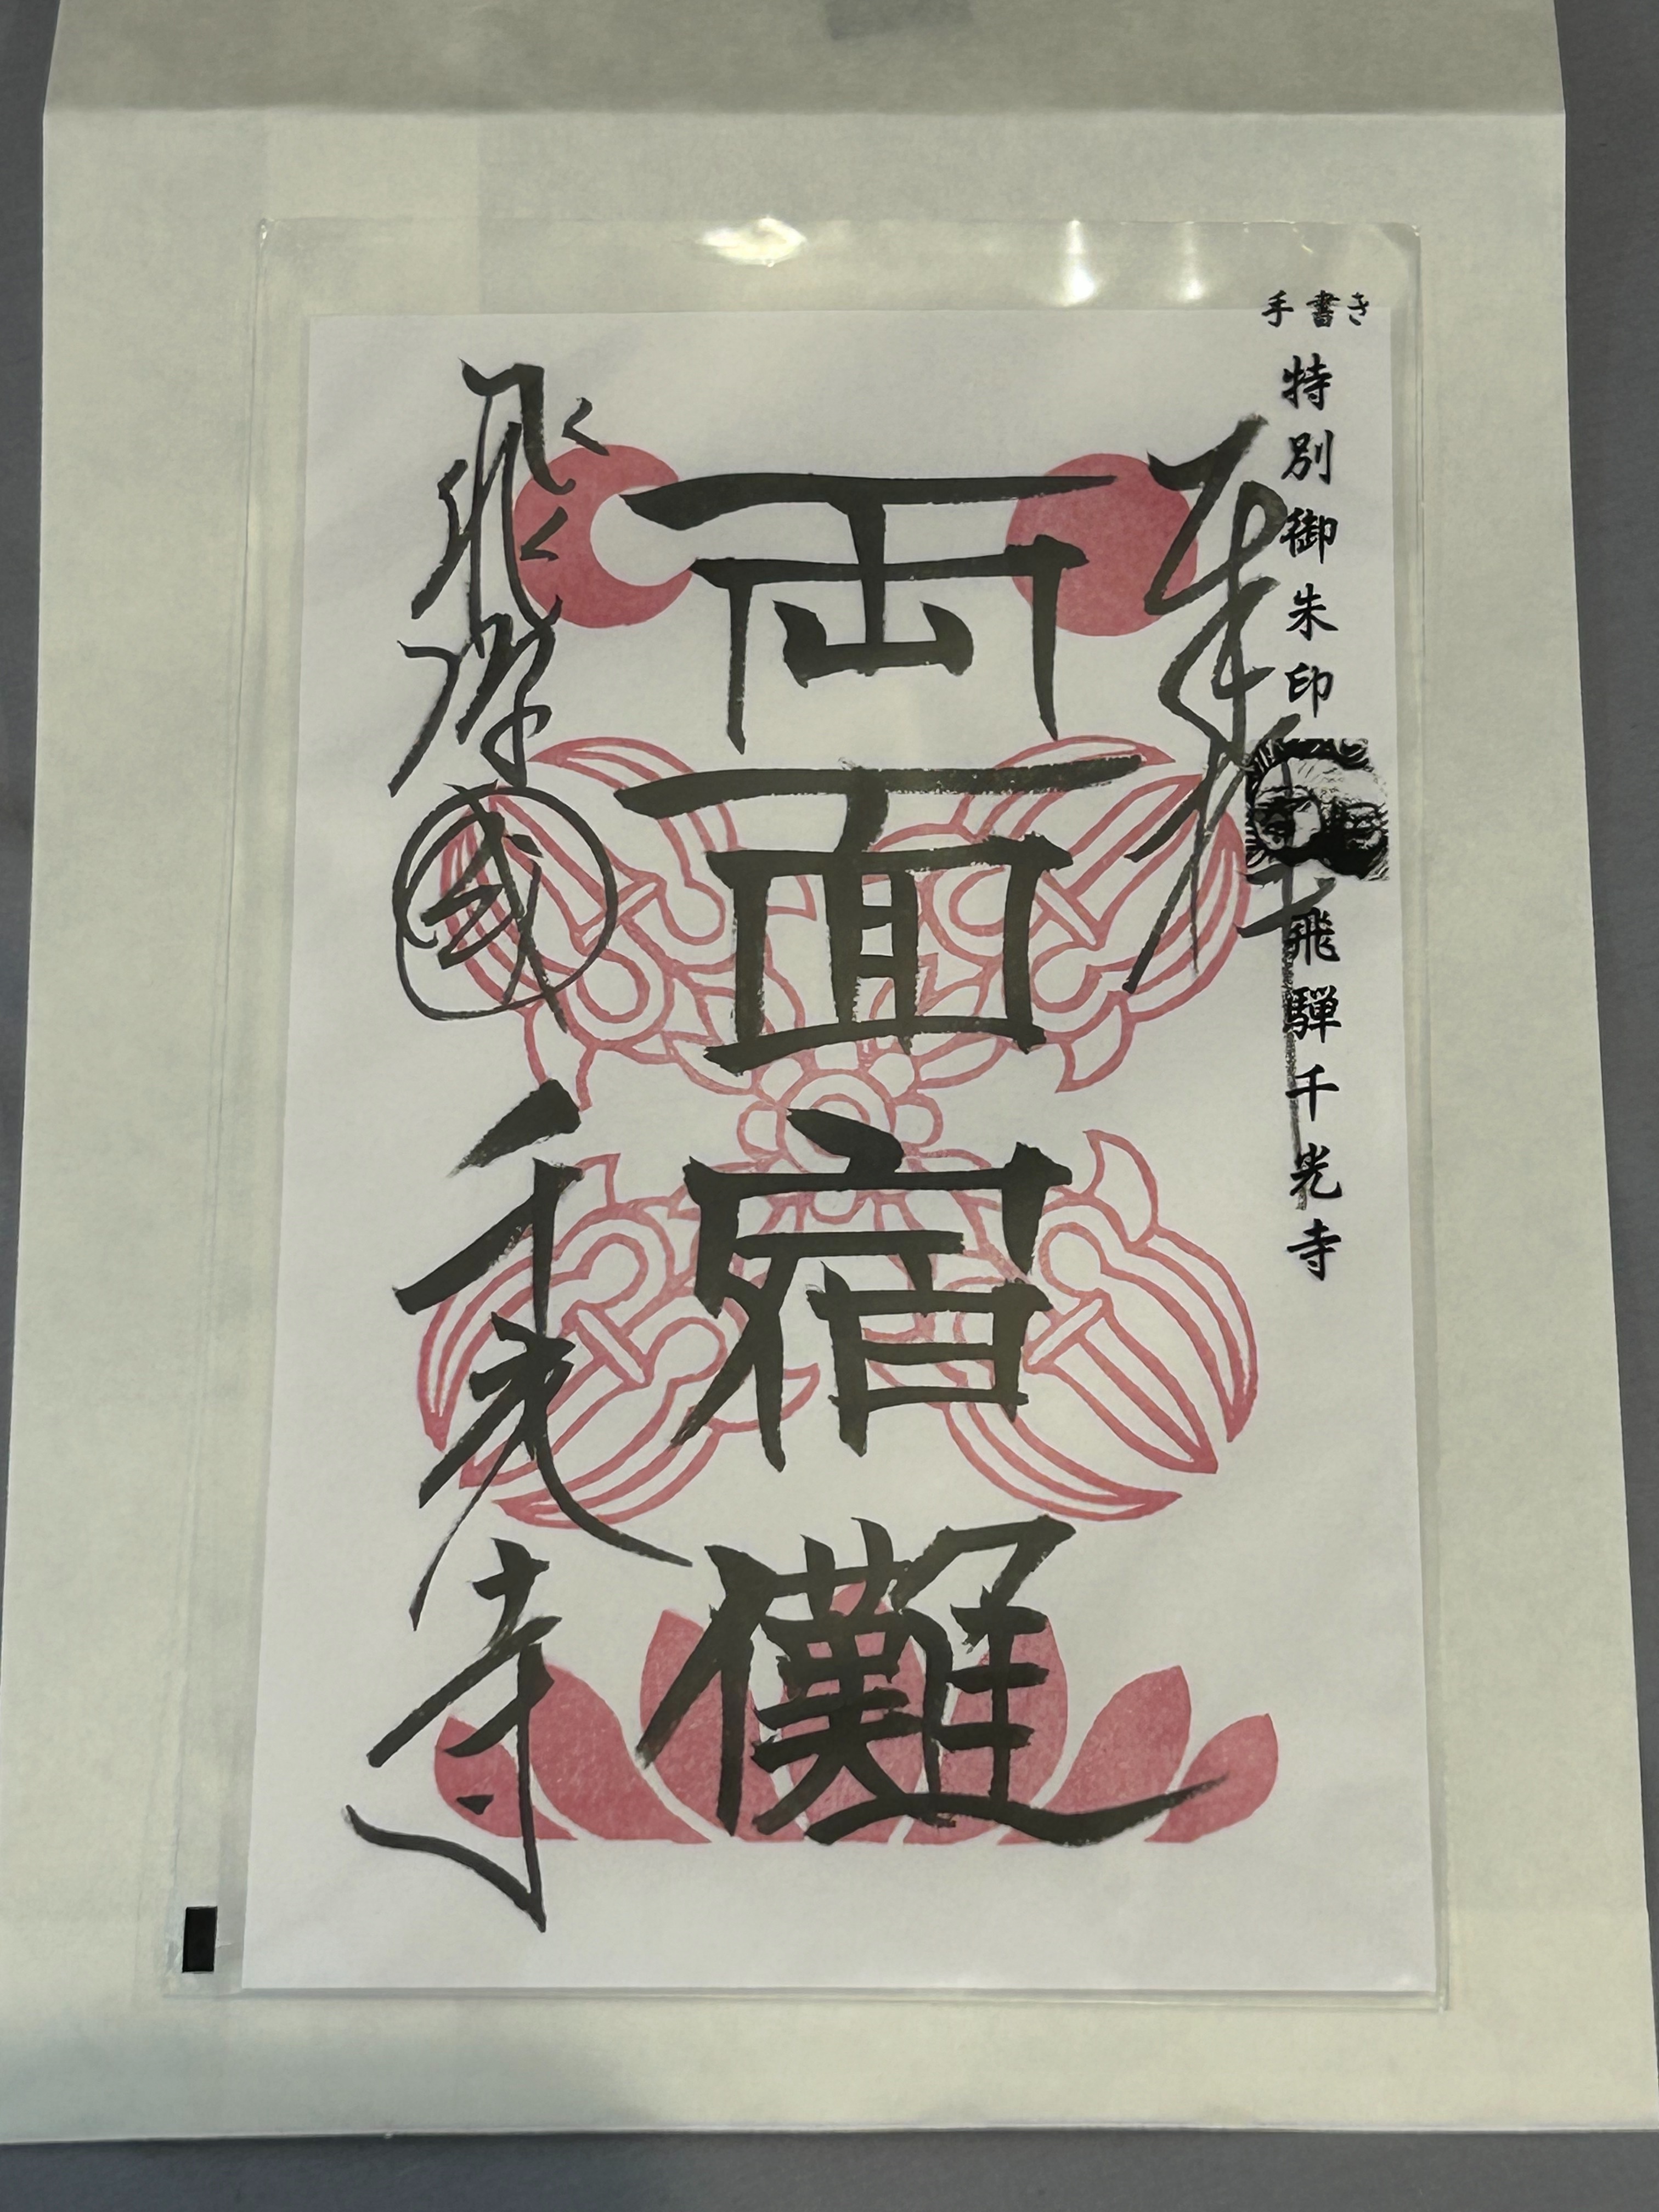 手書き
特別御朱印
飛騨千光寺
奉拝
両面宿儺
飛騨國千光寺